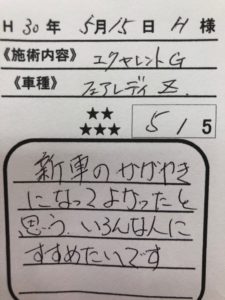 H 30年 5月15日 H 様
《施術内容》エクセレントG
《車種》フェアレディ Z.
★★
★★★ 5 / 5
新車のかがやき
になってよかったと
思う、いろんな人に
すすめたいです